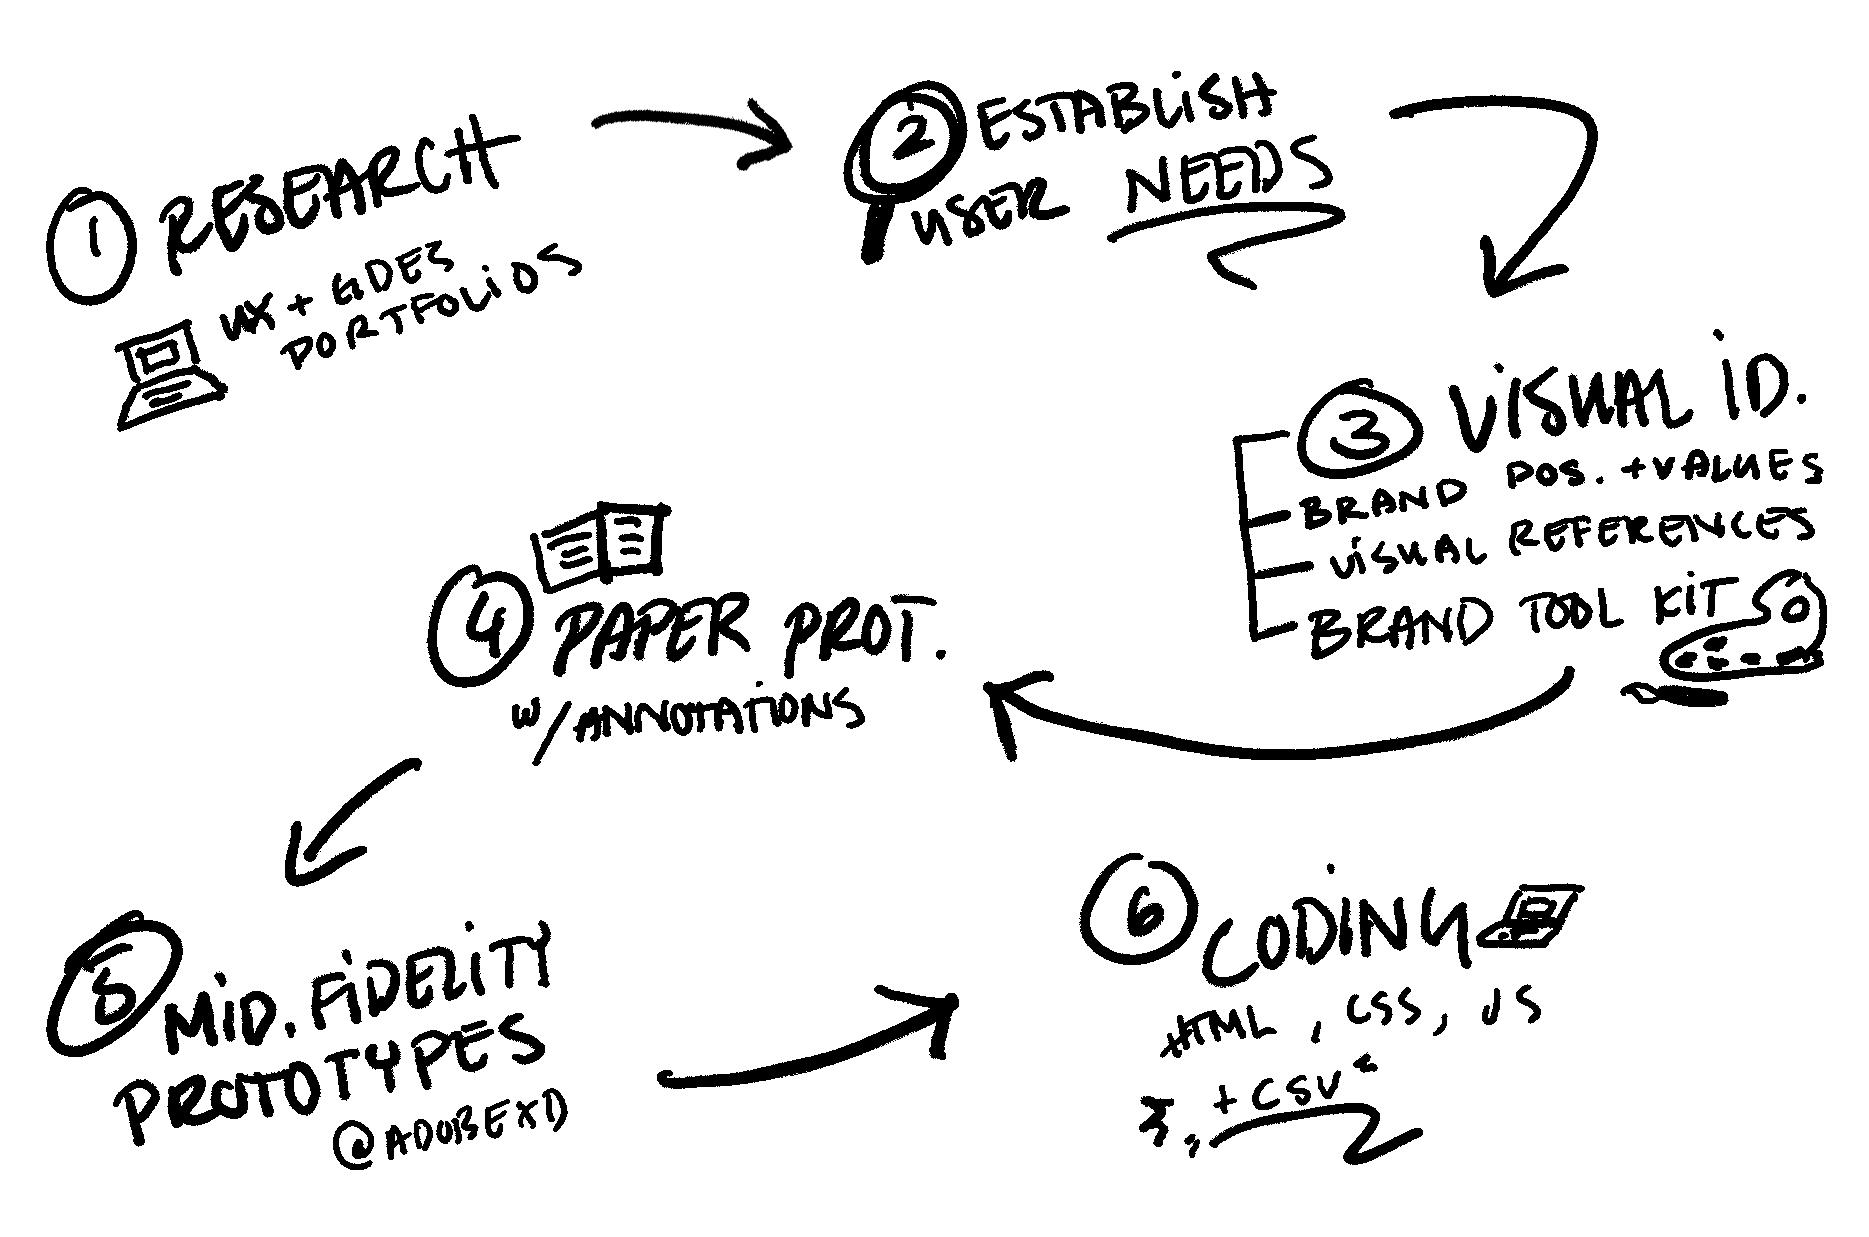 1 RESEARCH
UX + GDES
PORTFOLIOS
2 ESTABLISH
USER NEEDS
3 VISUAL ID.
BRAND POS. + VALUES
VISUAL REFERENCES
BRAND TOOL KIT
4 PAPER PROT.
W/ ANNOTATIONS
5 MID. FIDELITY
PROTOTYPES
@ADOBEXD
6 CODING
HTML, CSS, JS
+ CSV